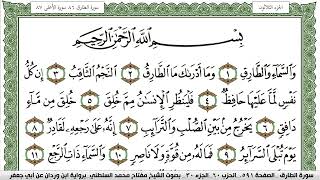 سورة الطارق ٨٦ سورة الأعلى ٨٧
الجزء الثلاثون
بِسْمِ اللَّهِ الرَّحْمَٰنِ الرَّحِيمِ
وَالسَّمَآءِ وَالطَّارِقِ ١ وَمَآ أَدْرَىٰكَ مَا الطَّارِقُ ٢ النَّجْمُ الثَّاقِبُ ٣ إِن كُلُّ
نَفْسٍ لَّمَا عَلَيْهَا حَافِظٌ ٤ فَلْيَنظُرِ الْإِنسَٰنُ مِمَّ خُلِقَ ٥ خُلِقَ مِن مَّآءٍ
دَافِقٍ ٦ يَخْرُجُ مِنۢ بَيْنِ الصُّلْبِ وَالتَّرَآئِبِ ٧ إِنَّهُ عَلَىٰ رَجْعِهِ لَقَادِرٌ ٨
يَوْمَ تُبْلَى السَّرَآئِرُ ٩ فَمَا لَهُ مِن قُوَّةٍ وَلَا نَاصِرٍ ١٠ وَالسَّمَآءِ ذَاتِ الرَّجْعِ ١١
سورة الطارق الصفحة ٥٩١ الحزب ٦٠ الجزء ٣٠ بصوت الشيخ مفتاح محمد السلطني برواية ابن وردان عن أبي جعفر